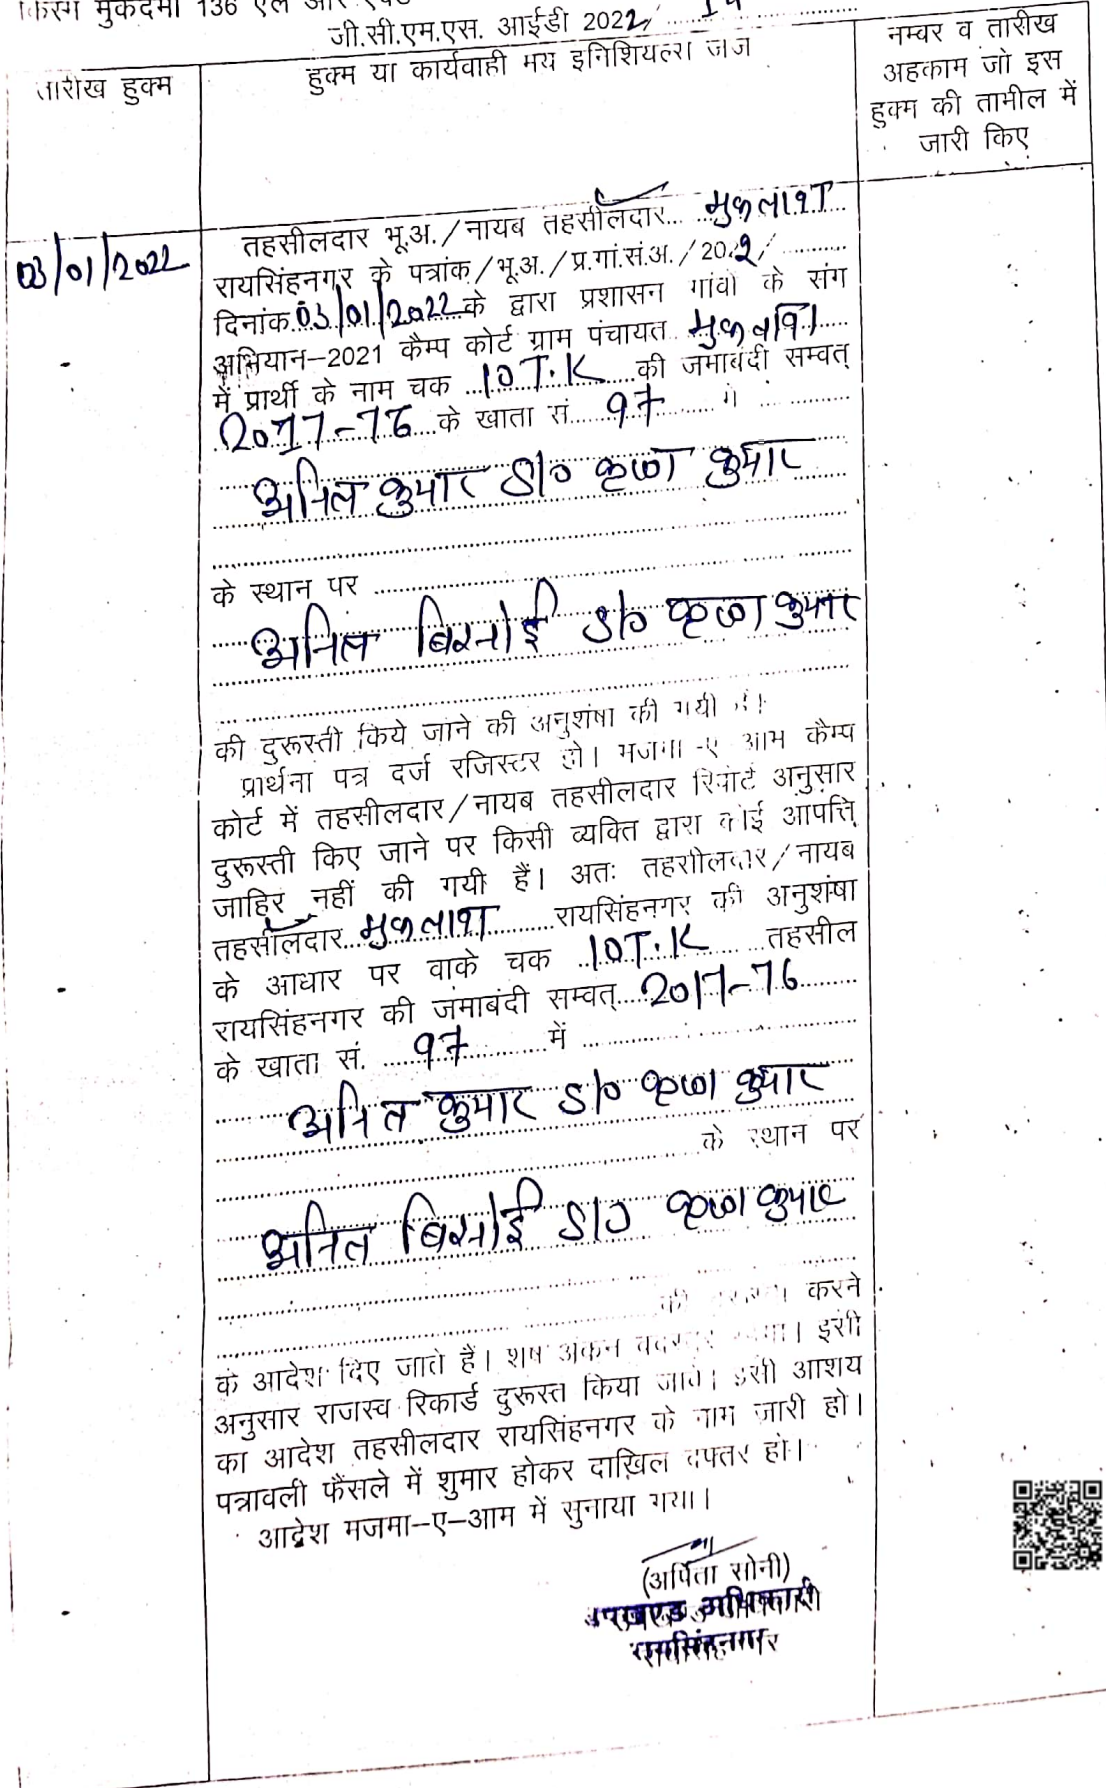 किस्म मुकदमा 136 एल आर एक्ट
जी.सी.एम.एस. आईडी 2022/
तारीख हुक्म
हुक्म या कार्यवाही मय इनिशियल्स जज
नम्बर व तारीख
अहकाम जो इस
हुक्म की तामील में
जारी किए
03/01/2022
तहसीलदार भू.अ./नायब तहसीलदार... मुकलावा
रायसिंहनगर के पत्रांक/भू.अ./प्र.गां.सं.अ./2022/..........
दिनांक 03/01/2022 के द्वारा प्रशासन गांवो के संग
अभियान-2021 कैम्प कोर्ट ग्राम पंचायत मुकलावा
में प्रार्थी के नाम चक ..10 T.K.....की जमाबंदी सम्वत्
2017-76...के खाता सं....97.......... में ..........
अनिल कुमार S/o कृष्ण कुमार
के स्थान पर ..........
अनिल बिश्नोई S/o कृष्ण कुमार
की दुरूस्ती किये जाने की अनुशंषा की गयी है।
प्रार्थना पत्र दर्ज रजिस्टर हो। मजमा-ए आम कैम्प
कोर्ट में तहसीलदार/नायब तहसीलदार रिपोर्ट अनुसार
दुरूस्ती किए जाने पर किसी व्यक्ति द्वारा कोई आपत्ति
जाहिर नहीं की गयी हैं। अतः तहसीलदार/नायब
तहसीलदार...मुकलावा.......रायसिंहनगर की अनुशंषा
के आधार पर वाके चक ..10T.K.......तहसील
रायसिंहनगर की जमाबंदी सम्वत्....2017-76........
के खाता सं. ....97..........में ..........
अनिल कुमार S/o कृष्ण कुमार
..........के स्थान पर
अनिल बिश्नोई S/o कृष्ण कुमार
की करने
के आदेश दिए जाते हैं। शेष अंकन इसी
अनुसार राजस्व रिकार्ड दुरूस्त किया जावे। इसी आशय
का आदेश तहसीलदार रायसिंहनगर के नाम जारी हो।
पत्रावली फैंसले में शुमार होकर दाखिल दफ्तर हो।
आदेश मजमा-ए-आम में सुनाया गया।
(अर्पिता सोनी)
उपखण्ड अधिकारी
रायसिंहनगर